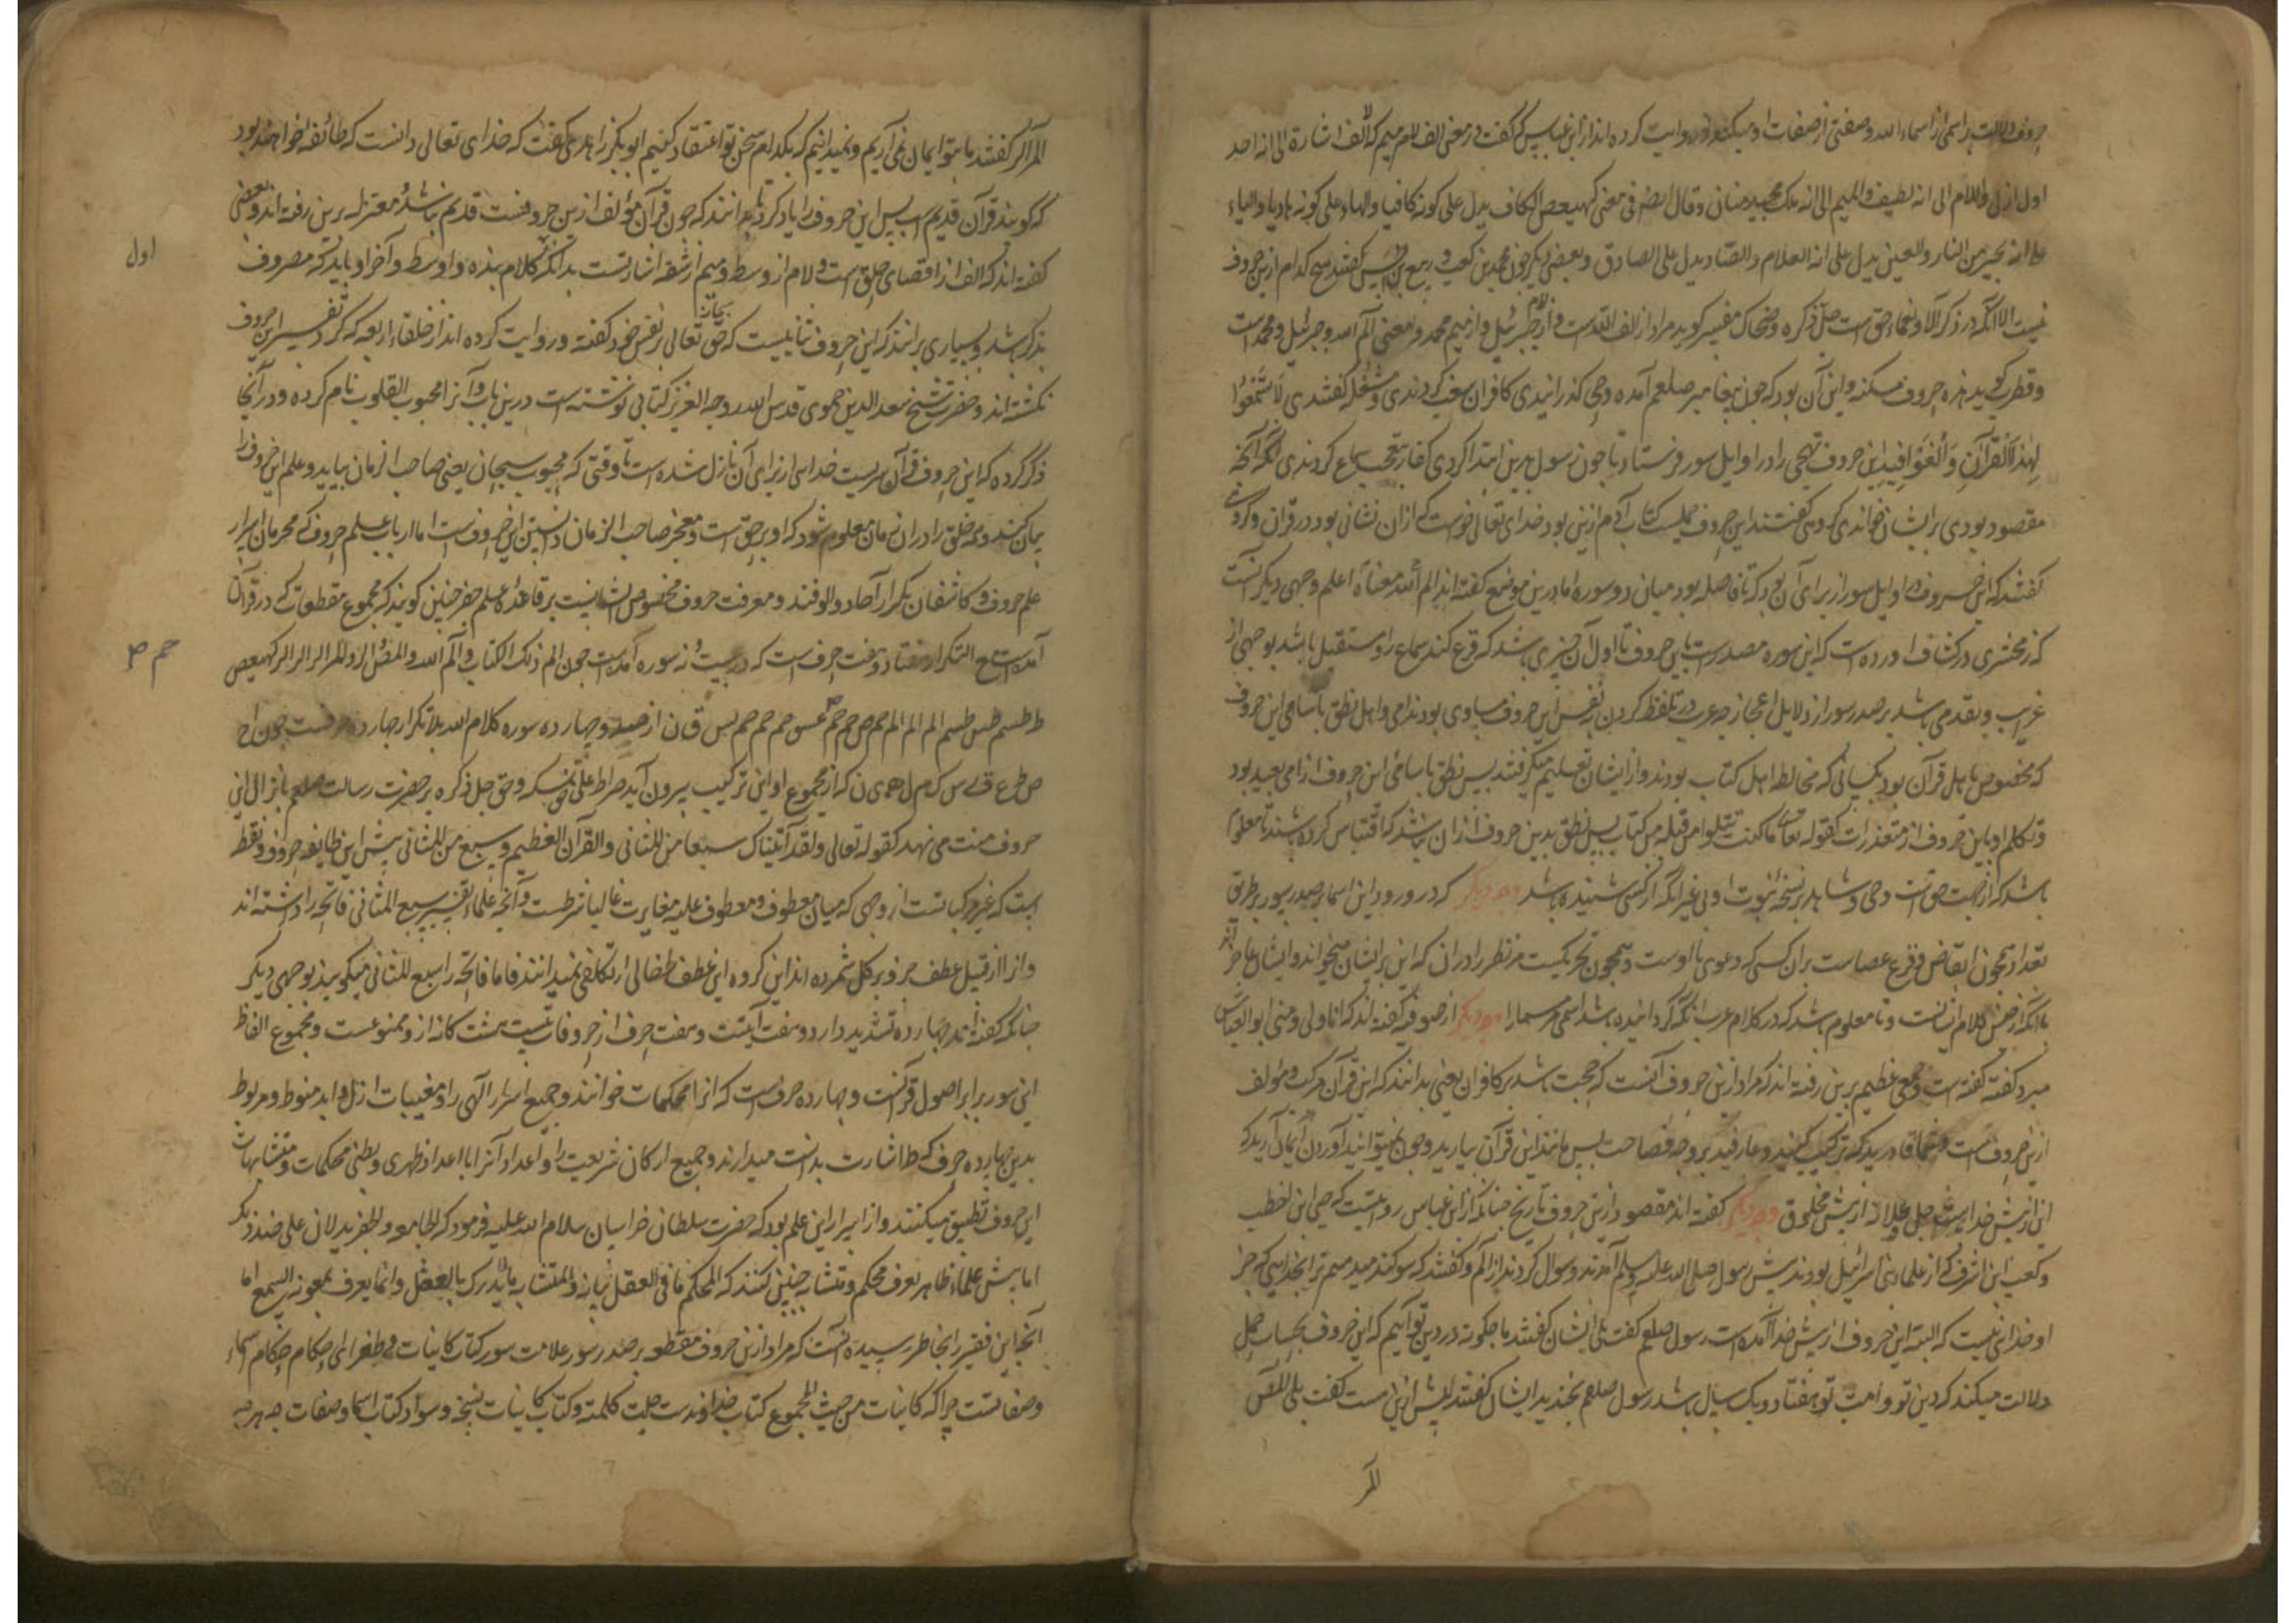 حروف دلالت بر اسمی از اسماء الله و صفتی از صفات او میکند و روایت کرده اند از ابن عباس که گفت در معنی الف لام میم که الف اشارة الی انه احد
اول ازلی و اللام الی انه لطیف و المیم الی انه ملک مجید منان و قال ایضا فی معنی کهیعص الکاف یدل علی کونه کافیا و الهاء علی کونه هادیا و الیاء
علی انه یجیر من النار و العین یدل علی انه العلام و الصاد یدل علی الصادق و بعضی دیگر چون محمد بن کعب و ربیع بن انس گفتند هیچ کدام ازین حروف
نیست الا آنکه در ذکر آلا و نعماء حق است جل ذکره و ضحاک مفسر گوید مراد از الف الله است و از لام جبرئیل و از میم محمد و معنی الم الله و جبرئیل و محمد است
و قطرب گوید هذه حروف مسکنه و این آن بود که چون پیغامبر صلعم آمده وحی گذرانیدی کافران سغب کردندی و مشغله گفتندی لا تسمعوا
لهذا القرآن و الغوا فیه این حروف تهجی را در اوایل سور فرستاد تا چون رسول بدین ابتدا کردی کفار بتعجب سماع کردندی آنگه آنچه
مقصود بودی بر ایشان خواندی گفتند این حروف خدای تعالی خواست که از آن نشانی بود در قرآن
گفتند که این حروف در اوایل سور از برای آن بود که تا فاصله بود میان دو سوره اما درین موضع گفته اند الم الله معناه اعلم وجهی دیگر آنست
که زمخشری در کشاف آورده است که این سوره مصدر است باین حروف تا اول آن چیزی باشد که قرع کند سماع را و مستقل باشد بوجهی از
غریب و تقدمی باشد بر صدر سور از دلایل اعجاز چه عرب در تلفظ کردن بنفس این حروف مساوی بودند امی و اهل نطق باسامی این حروف
که مخصوص باهل قرآن بود بکسانی که مخالط اهل کتاب بودند و از ایشان تعلیم میگرفتند پس نطق باسامی این حروف از امی بعید بود
و تکلم او باین حروف از متعذرات کقوله تعالی ما کنت تتلوا من قبله من کتاب پس نطق بدین حروف از آن باشد که اقتباس کرده باشند تا معلوم
باشد که از جهت حق است وحی و شاهد بر نسخه نبوت او بی غیر آنکه از کسی شنیده باشد وجه دیگر که در ورود این اسما بر صدر سور بر طریق
تعداد همچون ایقاظ و قرع عصاست بر آن کسی که دعوی با اوست و همچون تحریکیست مر نظر را در آن که این بر ایشان میخواند و ایشان عاجز اند
با آنکه از جنس کلام ایشانست و تا معلوم باشد که در کلام عرب آنکه گردانیده باشد اسمی مر مسما را وجه دیگر از صوفیه گفته اند که انا ولی و منی ابو العباس
مبرد گفته است و جمعی عظیم برین رفته اند که مراد ازین حروف آنست که حجت باشد بر کافران یعنی بدانند که این قرآن مرکب و مؤلف
ازین حروف است و شما قادرید که ترکیب کنید و عارفید بر وجه فصاحت پس مانند این قرآن بیارید و چون نمیتوانید آوردن ایمان آرید که
این از پیش خداست جل و علا نه از پیش مخلوق وجه دیگر گفته اند مقصود ازین حروف تاریخ چنانکه از ابن عباس روایتست که حیی ابن اخطب
و کعب ابن اشرف که از علماء بنی اسرائیل بودند پیش رسول صلی الله علیه و سلم آمدند و سوال کردند از الم و گفتند که سوگند میدهیم ترا بخدایی که جز
او خدائی نیست که البته این حروف از پیش خدا آمده است رسول صلعم گفت بلی ایشان گفتند ما چگونه در دین تو آییم که این حروف بحساب جمل
دلالت میکند که دین تو و امت تو هفتاد و یک سال باشد رسول صلعم بخندید ایشان گفتند پیش ازین هست گفت بلی المص
المر
المر الر گفتند ما بتو ایمان نمی آریم و نمیدانیم که بکدام سخن تو اعتقاد کنیم ابو بکر زاهدی گفت که خدای تعالی دانست که طائفه خواهند بود
که گویند قرآن قدیم است پس این حروف را یاد کرد تا بدانند که چون قرآن مؤلف ازین حروفست قدیم نباشد و معتزله برین رفته اند و بعضی
گفته اند که الف از اقصای حلق است و لام از وسط و میم از شفه اشارتست بدانکه کلام بنده و اوسط و آخر او باید که مصروف
اول
بذکر باشد و بسیاری بر آنند که این حروف ثنائیست که حق سبحانه تعالی بر نفس خود گفته و روایت کرده اند از خلفاء اربعه که گرد تفسیر این حروف
نگشته اند و حضرت شیخ سعد الدین حموی قدس الله روحه العزیز کتابی نوشته است درین باب و آنرا محبوب القلوب نام کرده و در آنجا
ذکر کرده که این حروف قرآن سریست خدایی از برای آن نازل شده است تا وقتی که محبوب سبحان یعنی صاحب الزمان بیاید و علم این حروف را
بیان کند و همه خلق را در آن زمان معلوم شود که او بر حق است و معجز صاحب الزمان دانستن این حروفست اما ارباب علم حروف که محرمان اسرار
علم حروف و کاشفان تکرار آحاد و الوفند و معرفت حروف مخصوص بایشانست بر قاعده علم جفر چنین گویند که مجموع مقطعات که در قرآن
آمده است مع التکرار هفتاد و هفت حرف است که در بیست و نه سوره آمده است چون الم ذلک الکتاب و الم الله و المص الر و المر الر الر الر کهیعص
حم ۳
طه طسم طس طسم الم الم الم الم یس ص حم حم حم عسق حم حم حم حم ق ن از صد و چهارده سوره کلام الله بلا تکرار چهارده حرفست چون ا ح
ص ط ع ق س ک ر م ل ه ی ن که از مجموع او این ترکیب بیرون آید صراط علی حق نمسکه و حق جل ذکره بر حضرت رسالت صلعم بانزال این
حروف منت می نهد کقوله تعالی و لقد آتیناک سبعا من المثانی و القرآن العظیم و سبع من المثانی پیش این طایفه حروف و نقط
است که غیر مرکباتست از وجهی که میان معطوف و معطوف علیه مغایرت غالبا شرطست و آنچه علماء تفسیر سبع المثانی فاتحه را داشته اند
و از از قبیل عطف جزو بر کل شمرده اند این گروه این عطف را خالی از تکلفی نمیدانند فاما فاتحه را سبع المثانی میگویند بوجهی دیگر
چنانکه گفته اند چهارده تشدید دارد و هفت آیتست و هفت حرف از حروفات بیست هشت گانه ازو ممنوعست و مجموع الفاظ
این سور برابر اصول قرآنست و چهارده حرف است که آنرا محکمات خوانند و جمیع اسرار الهی را و مغیبات ازل و ابد منوط و مربوط
بدین چهارده حرف که اشارت بدانست میدارند و جمیع ارکان شریعت را و اعداد آنرا با اعداد ظهری و بطنی محکمات و متشابهات
این حروف تطبیق میکنند و از اسرار این علم بود که حضرت سلطان خراسان سلام الله علیه فرمود که الجامعه و الجفر یدلان علی ضد ذلک
اما پیش علماء ظاهر تعریف محکم و متشابه چنین کنند که المحکم ما فی العقل بیانه و المتشابه ما لا یدرک بالعقل و انما یعرف بمعونة السمع اما
آنچه این فقیر را بخاطر رسیده آنست که مراد ازین حروف مقطعه بر صدر سور علامت سور کتاب کاینات و طغرای احکام
و صفاتست چرا که کاینات من حیث المجموع کتاب خداوندست جلت کلمته و کتاب کاینات نسخه و سواد کتاب اسما و صفات چه هر چه